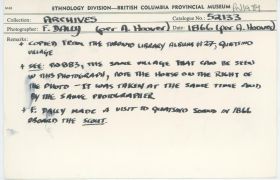 ETHNOLOGY DIVISION—BRITISH COLUMBIA PROVINCIAL MUSEUM
Collection: ARCHIVES Catalogue No.: 52133
Photographer: F. DALLY (per A. Hoover) Date: 1866 (per A. Hoover)
Remarks:
* COPIED FROM THE TORONTO LIBRARY ALBUM #27; QUATSINO
VILLAGE
* SEE: THE SAME VILLAGE THAT CAN BE SEEN
IN THIS PHOTOGRAPH, NOTE THE HOUSE ON THE RIGHT OF
THE PHOTO - IT WAS TAKEN AT THE SAME TIME AND
BY THE SAME PHOTOGRAPHER
* F. DALLY MADE A VISIT TO QUATSINO SOUND IN 1866
ABOARD THE SCOUT.